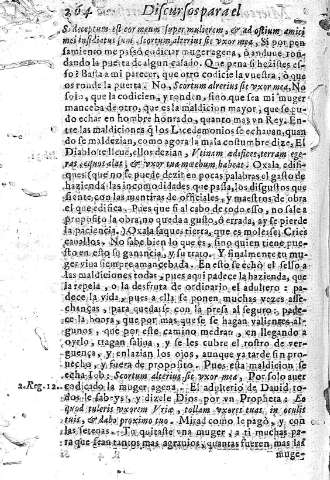 264 Discursos para el
Si deceptum est cor meum super mulierem, & ad ostium amici
mei insidiatus sum. Scortum alterius sit vxor mea. Si por pen-
samiento me passò codiciar muger agena, ò anduue ron-
dando la puerta de algun casado. Que pena si hezistes es-
so? Basta a mi parecer, que otro codicie la vuestra, ò que
os ronde la puerta. No, Scortum alterius sit vxor mea. No
solo, que la codicien, y ronden, sino que sea mi muger
manceba de otro, que es la maldicion mayor, que se pu-
do echar en hombre honrado, quanto mas vn Rey. En-
tre las maldiciones q̃ los Lacedemonios se echauan, quan
do se maldezian, como agora la mala costumbre dize. El
Diablo te lleue, ellos dezian, Vtinam adifices, terram ege-
ras, equos alas, & vxor tua mœchum habeat. Oxala edifi-
ques (que no se puede dezir en pocas palabras el gasto de
hazienda, las incomodidades que passa, los disgustos que
siente, con las mentiras de officiales, y maestros de obra
el que edifica. Pues que si al cabo de todo esso, no sale a
proposito la obra, no queda a gusto, o errada, ay se pierde
la paciencia.) Oxala saques tierra, que es molesto. Cries
cauallos. No sabe bien lo que es, sino quien tiene pue-
sto en esto su ganancia, y su trato. Y finalmente tu mu-
ger viua siempre amancebada. En esto se echò el sello a
las maldiciones todas, pues aqui padece la hazienda, que
la repela, o la desfruta de ordinario el adultero: pa-
dece la vida, pues a ella se ponen muchas vezes asse-
chanças, para quedarse con la presa al seguro: pade-
ce la honra, que por mas que se hagan valientes al-
gunos, que por este camino medran, en llegando a
oyrlo, tragan salina, y se les cubre el rostro de ver-
guença, y enlazan los ojos, aunque ya tarde sin pro-
uecho, y fuera de proposito. Pues esta maldicion se
echa Iob: Scortum alterius sit vxor mea. Por solo auer
2. Reg. 12. codiciado la muger agena. El adulterio de Dauid to-
dos le sabeys, y dizele Dios por vn Propheta: Eo
quod tuleris vxorem Vriæ, tollam vxores tuas in oculis
tuis, & dabo proximo tuo. Mirad como lo pagò, y con
las setenas. Tu quitaste vna muger, a ti muchas pa-
ra que sean tantos mas agrauios, quantas fueren mas las
muge-